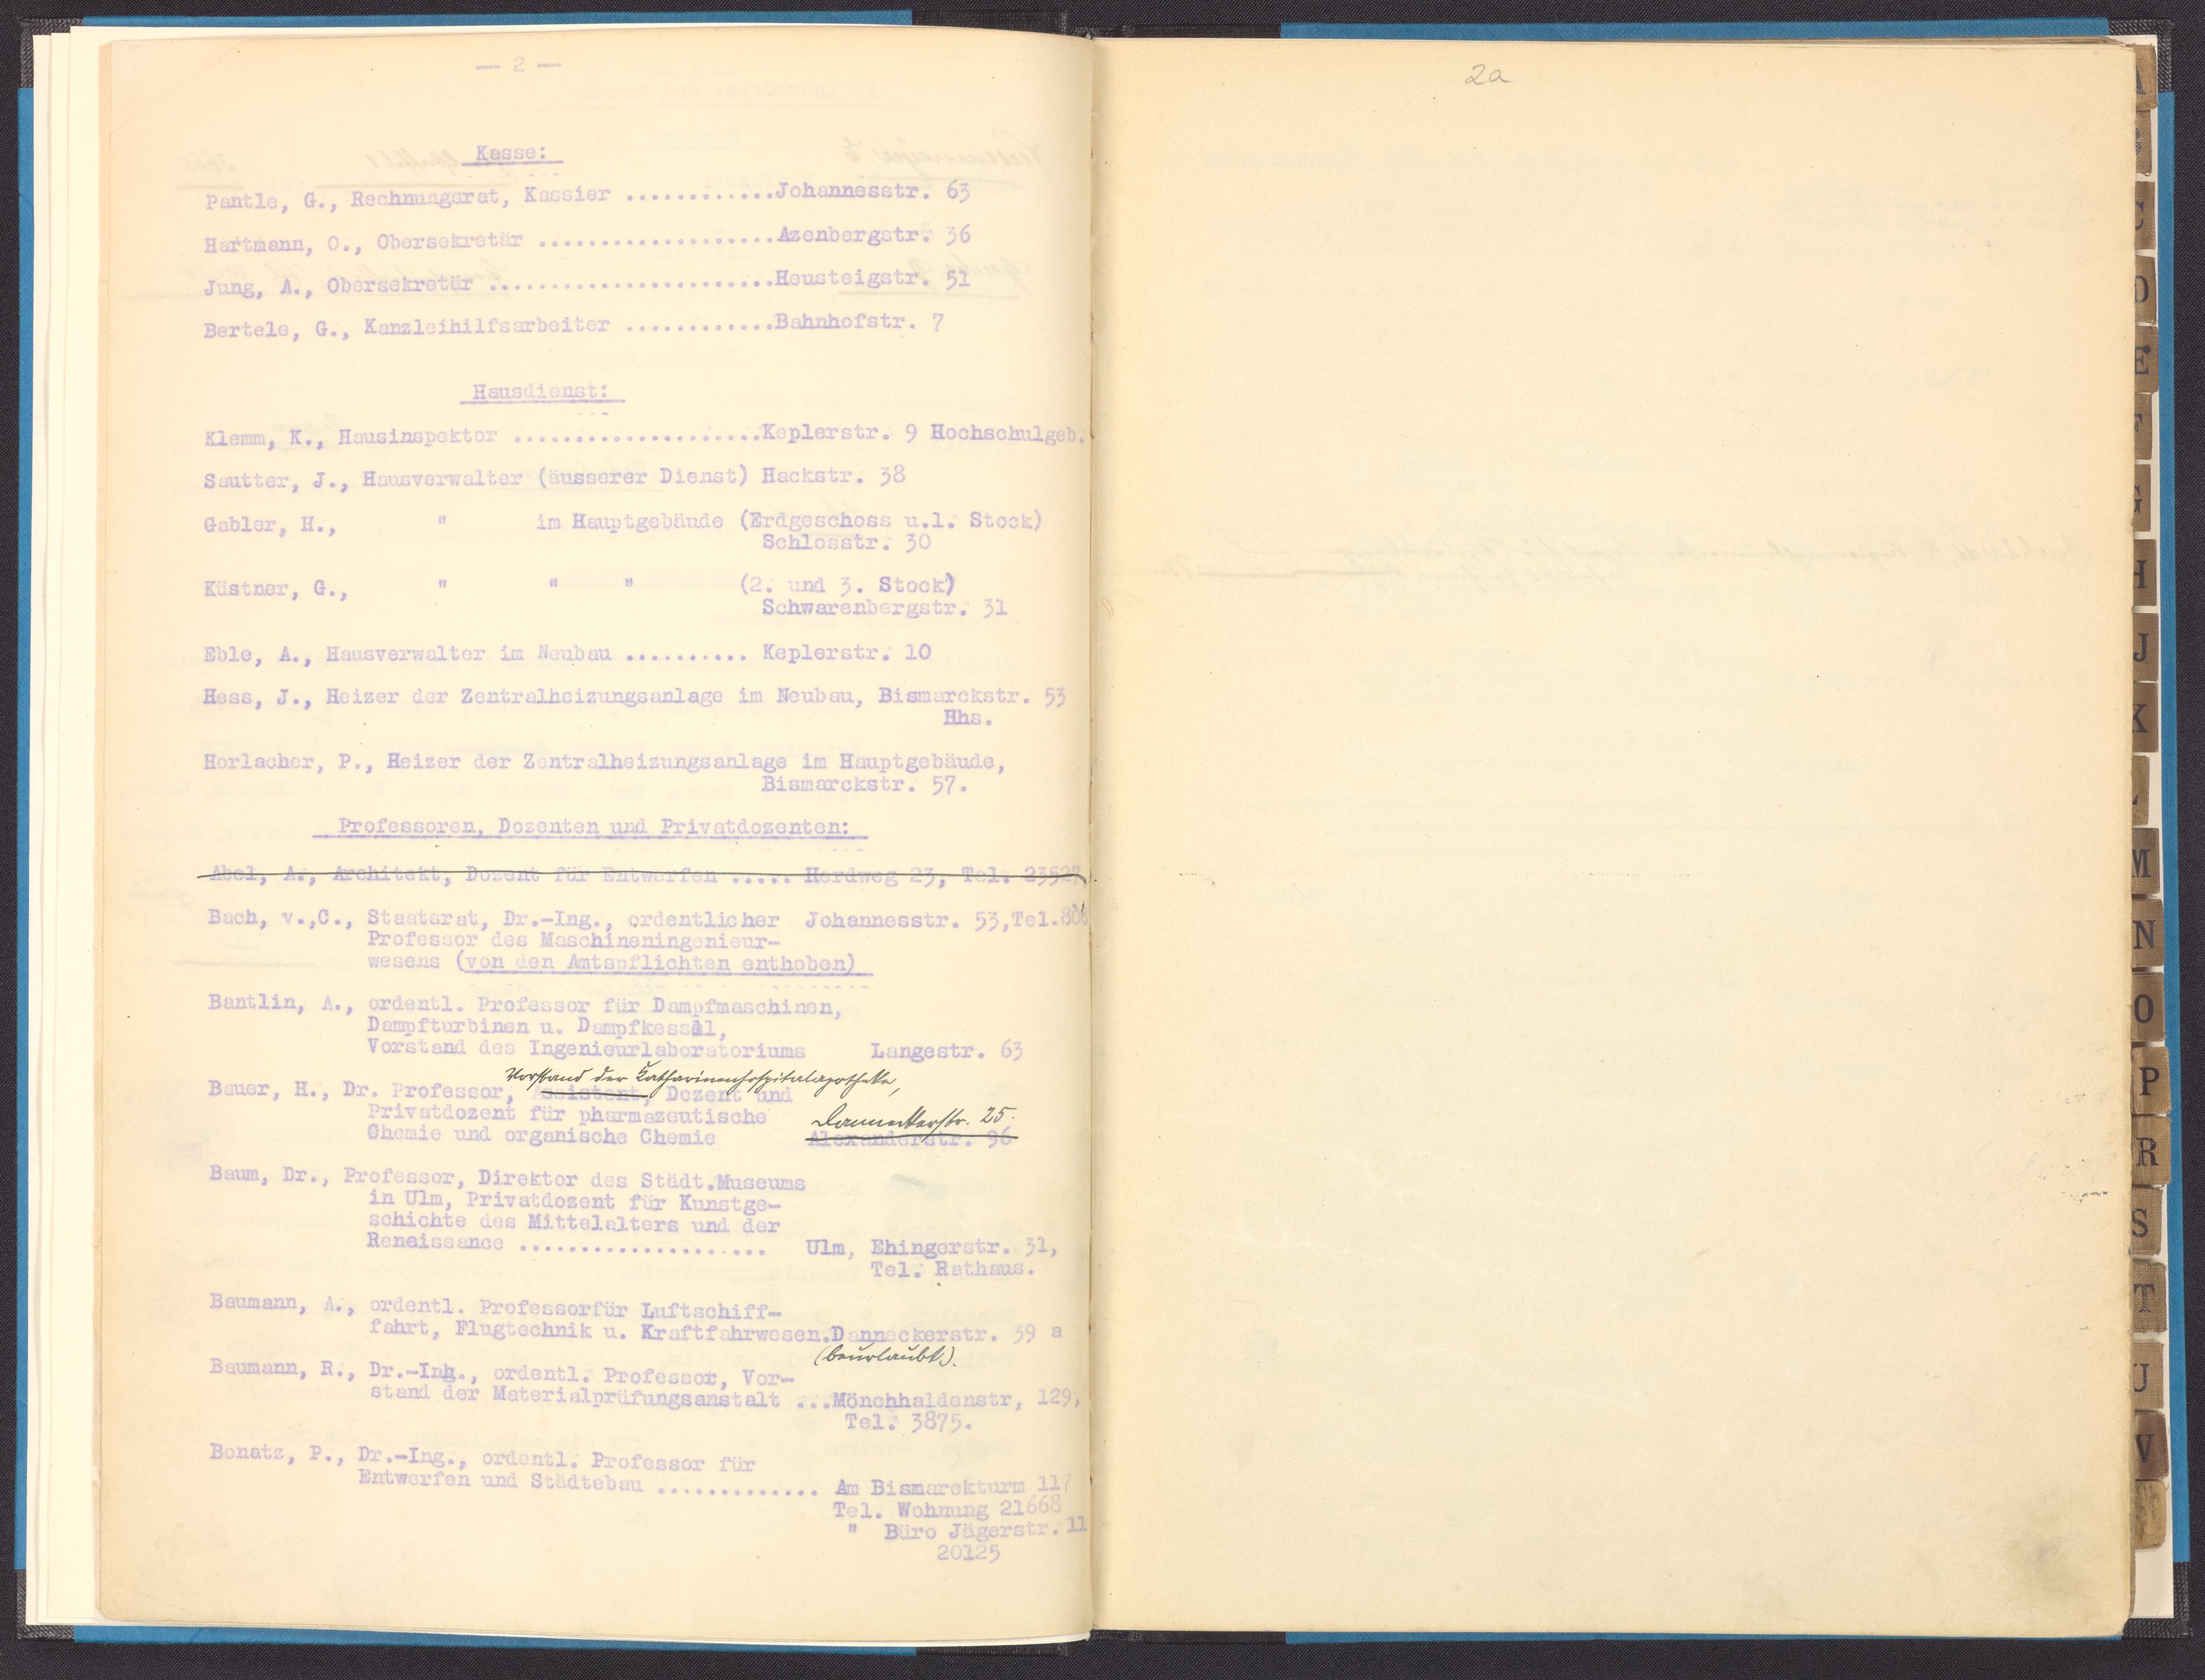 — 2 —
Kasse:
Pantle, G., Rechnungsrat, Kassier ............Johannesstr. 63
Hartmann, O., Obersekretär ...................Azenbergstr. 36
Jung, A., Obersekretär .......................Heusteigstr. 51
Bertele, G., Kanzleihilfsarbeiter ............Bahnhofstr. 7
Hausdienst:
Klemm, K., Hausinspektor ....................Keplerstr. 9 Hochschulgeb.
Sautter, J., Hausverwalter (äusserer Dienst) Hackstr. 38
Gabler, H., " im Hauptgebäude (Erdgeschoss u.1. Stock)
Schlosstr. 30
Küstner, G., " " " (2. und 3. Stock)
Schwarenbergstr. 31
Eble, A., Hausverwalter im Neubau .......... Keplerstr. 10
Hess, J., Heizer der Zentralheizungsanlage im Neubau, Bismarckstr. 53
Hhs.
Horlacher, P., Heizer der Zentralheizungsanlage im Hauptgebäude,
Bismarckstr. 57.
Professoren, Dozenten und Privatdozenten:
Abel, A., Architekt, Dozent für Entwerfen ..... Herdweg 23, Tel. 23527
Bach, v.,C., Staatsrat, Dr.-Ing., ordentlicher Johannesstr. 53,Tel.
Professor des Maschineningenieur-
wesens (von den Amtspflichten enthoben)
Bantlin, A., ordentl. Professor für Dampfmaschinen,
Dampfturbinen u. Dampfkessel,
Vorstand des Ingenieurlaboratoriums Langestr. 63
Vorstand der Katharinenhospitalapotheke,
Bauer, H., Dr. Professor, Assistent, Dozent und
Privatdozent für pharmazeutische Danneckerstr. 25.
Chemie und organische Chemie Alexanderstr. 96
Baum, Dr., Professor, Direktor des Städt.Museums
in Ulm, Privatdozent für Kunstge-
schichte des Mittelalters und der
Renaissance .................... Ulm, Ehingerstr. 31,
Tel. Rathaus.
Baumann, A., ordentl. Professorfür Luftschiff-
fahrt, Flugtechnik u. Kraftfahrwesen.Danneckerstr. 39 a
(beurlaubt).
Baumann, R., Dr.-Ing., ordentl. Professor, Vor-
stand der Materialprüfungsanstalt ...Mönchhaldenstr, 129,
Tel. 3875.
Bonatz, P., Dr.-Ing., ordentl. Professor für
Entwerfen und Städtebau ............. Am Bismarckturm
Tel. Wohnung 21668
" Büro Jägerstr. 11
20125
2a
A
C
D
E
F
G
H
J
K
L
M
N
O
P
R
S
T
U
V